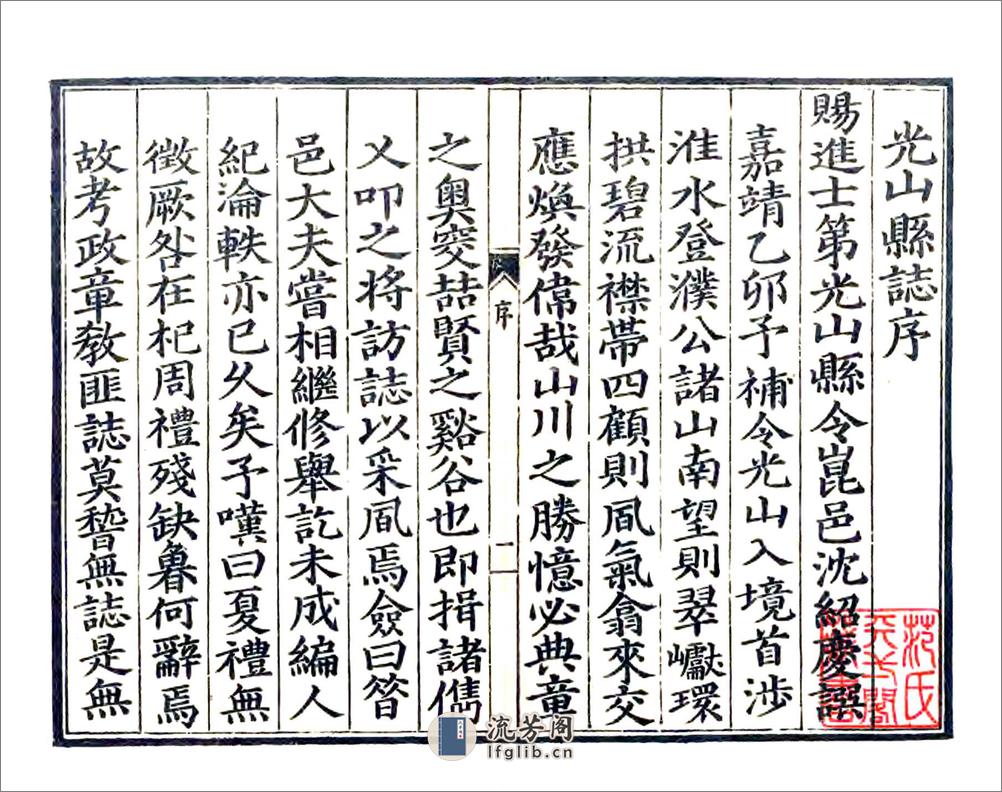 光山縣誌序
賜進士第光山縣令崑邑沈紹慶譔
嘉靖乙卯予補令光山入境首涉
淮水登濮公諸山南望則翠巘環
拱碧流襟帶四顧則風氣翕來交
應煥發偉哉山川之勝憶必典章
之奧窔喆賢之谿谷也即揖諸儁
乂叩之將訪誌以采風焉僉曰簮
邑大夫嘗相繼修舉訖未成編人
紀淪軼亦已久矣予嘆曰夏禮無
徵厥咎在杞周禮殘缺魯何辭焉
故考政章教匪誌莫稽無誌是無
序
一
范氏天一閣藏書
流芳阁
lfglib.cn